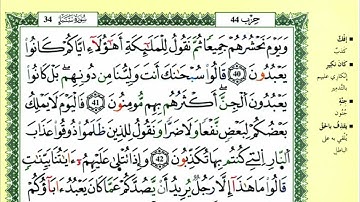 34
سورة سبأ
حزب 44
وَيَوْمَ نَحْشُرُهُمْ جَمِيعًا ثُمَّ نَقُولُ لِلْمَلَٰٓئِكَةِ أَهَٰٓؤُلَآءِ اِيَّاكُمْ كَانُواْ
يَعْبُدُونَ 40 قَالُواْ سُبْحَٰنَكَ أَنتَ وَلِيُّنَا مِن دُونِهِم بَلْ كَانُواْ
يَعْبُدُونَ اَلْجِنَّ أَكْثَرُهُم بِهِم مُّومِنُونَ 41 فَالْيَوْمَ لَا يَمْلِكُ
بَعْضُكُمْ لِبَعْضٍ نَّفْعًا وَلَا ضَرًّا وَنَقُولُ لِلذِينَ ظَلَمُواْ ذُوقُواْ عَذَابَ
اَلنّارِ اِلتِے كُنتُم بِهَا تُكَذِّبُونَ 42 وَإِذَا تُتْلَىٰ عَلَيْهِمُۥٓ ءَايَٰتُنَا بَيِّنَٰتٍ
قَالُواْ مَا هَٰذَآ إِلَّا رَجُلٌ يُرِيدُ أَنْ يَّصُدَّكُمْ عَمَّا كَانَ يَعْبُدُ ءَابَآؤُكُمْ
إِفْكٌ
كذب
كان نكير
إنكاري عليهم
بالتدمير
جِنَّةٍ
جنون
يقذف بالحق
يلقي به على
الباطل